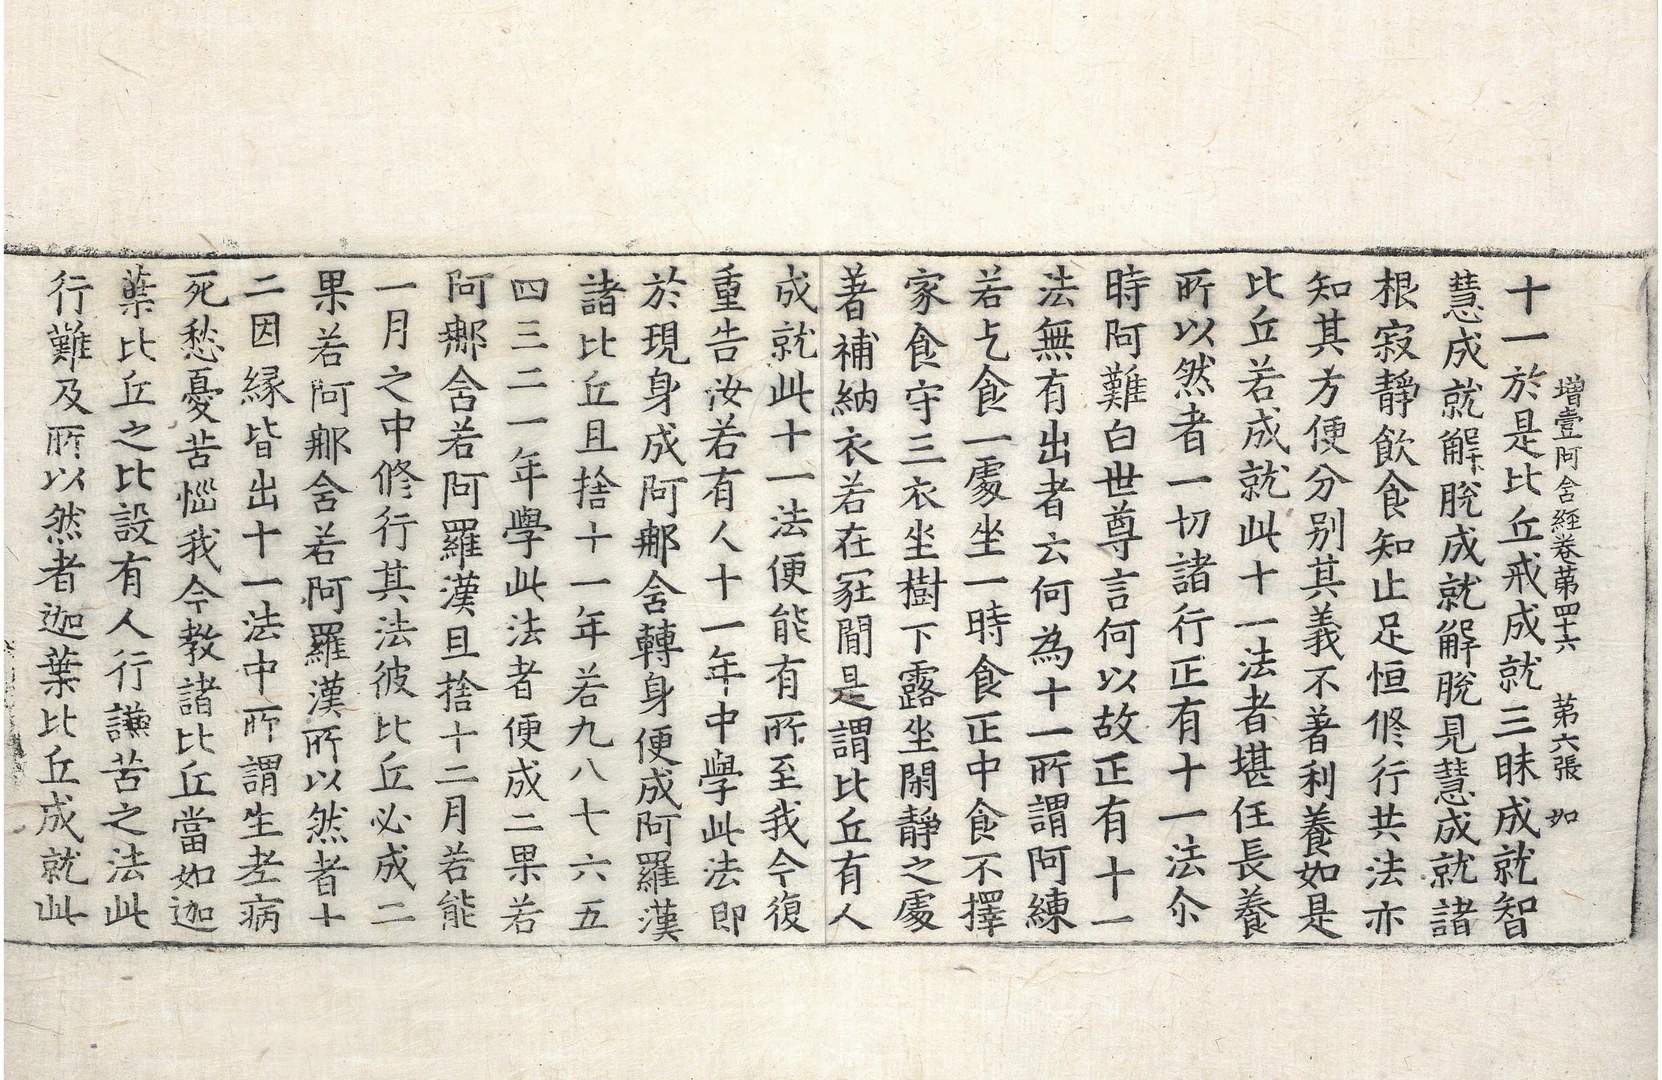 增壹阿含經卷第四十六　第六張　如
十一於是比丘戒成就三昧成就智
慧成就解脫成就解脫見慧成就諸
根寂靜飲食知止足恒修行共法亦
知其方便分別其義不著利養如是
比丘若成就此十一法者堪任長養
所以然者一切諸行正有十一法尒
時阿難白世尊言何以故正有十一
法無有出者云何為十一所謂阿練
若乞食一處坐一時食正中食不擇
家食守三衣坐樹下露坐閑靜之處
著補納衣若在冢間是謂比丘有人
成就此十一法便能有所至我今復
重告汝若有人十一年中學此法即
於現身成阿那含轉身便成阿羅漢
諸比丘且捨十一年若九八七六五
四三二一年學此法者便成二果若
阿那含若阿羅漢且捨十二月若能
一月之中修行其法彼比丘必成二
果若阿那含若阿羅漢所以然者十
二因緣皆出十一法中所謂生老病
死愁憂苦惱我今教諸比丘當如迦
葉比丘之比設有人行謙苦之法此
行難及所以然者迦葉比丘成就此